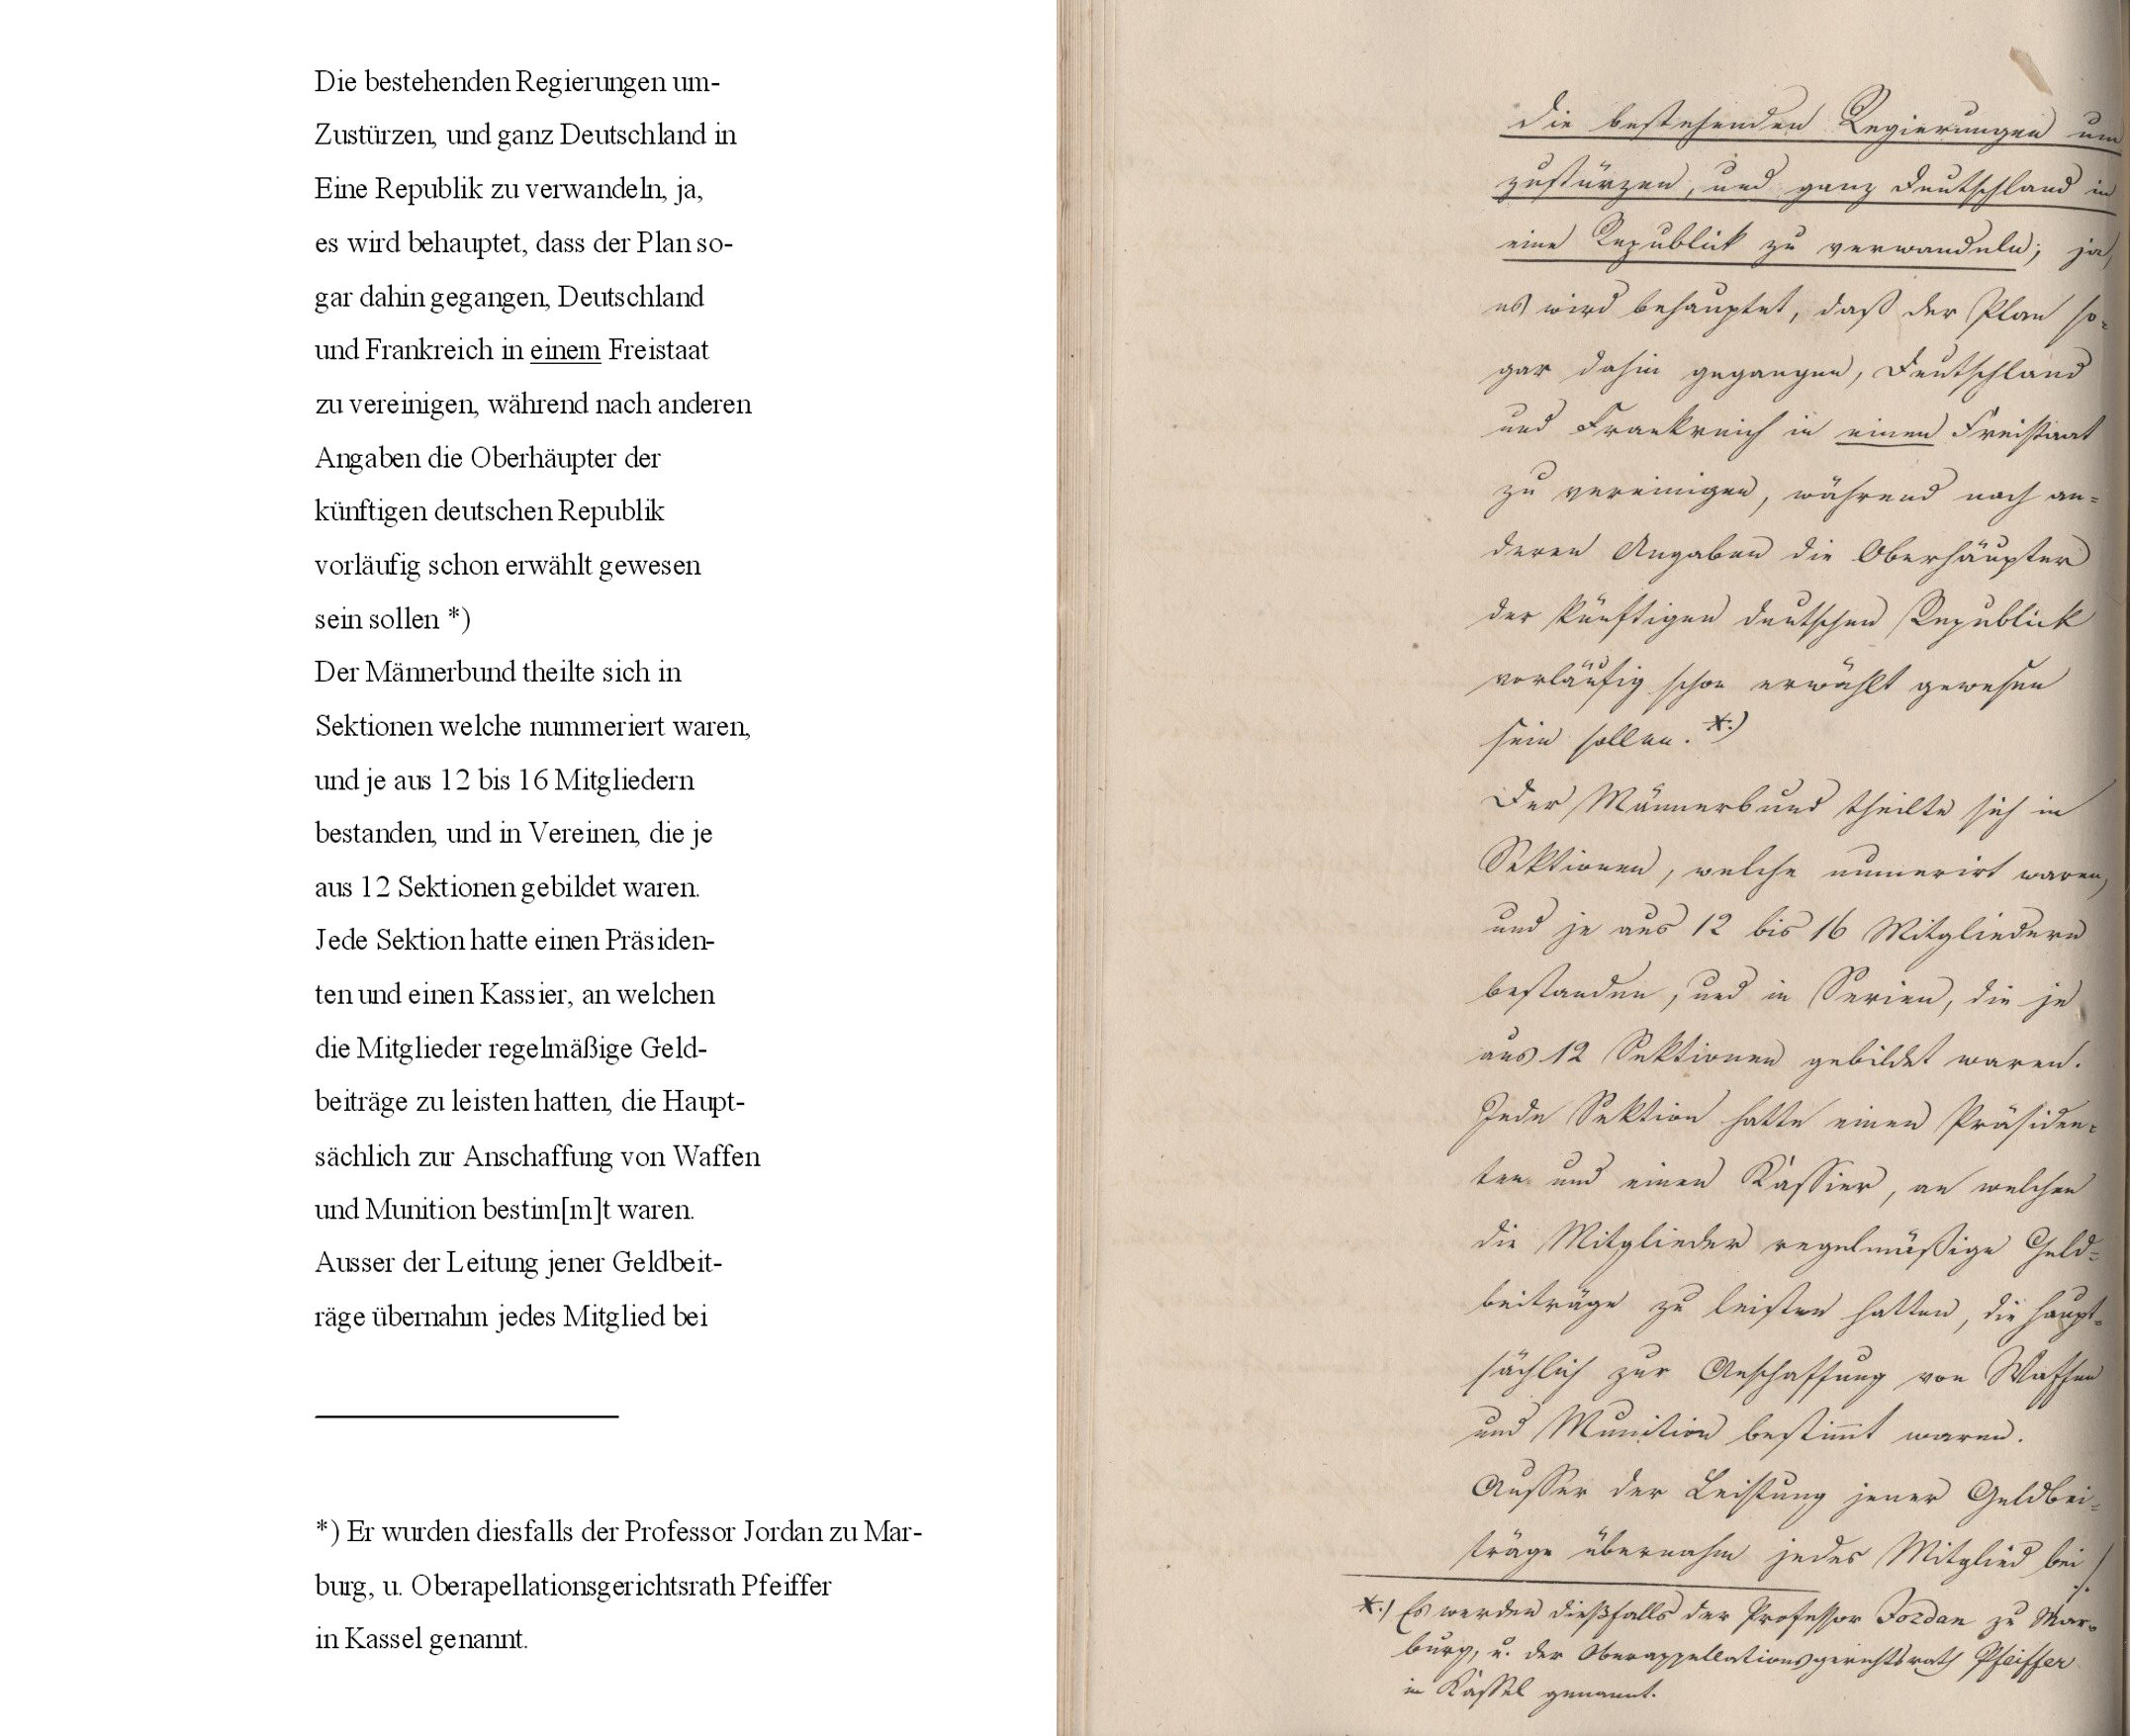 Die bestehenden Regierungen um-
Zustürzen, und ganz Deutschland in
Eine Republik zu verwandeln, ja,
es wird behauptet, dass der Plan so-
gar dahin gegangen, Deutschland
und Frankreich in einem Freistaat
zu vereinigen, während nach anderen
Angaben die Oberhäupter der
künftigen deutschen Republik
vorläufig schon erwählt gewesen
sein sollen *)
Der Männerbund theilte sich in
Sektionen welche nummeriert waren,
und je aus 12 bis 16 Mitgliedern
bestanden, und in Vereinen, die je
aus 12 Sektionen gebildet waren.
Jede Sektion hatte einen Präsiden-
ten und einen Kassier, an welchen
die Mitglieder regelmäßige Geld-
beiträge zu leisten hatten, die Haupt-
sächlich zur Anschaffung von Waffen
und Munition bestim[m]t waren.
Ausser der Leitung jener Geldbeit-
räge übernahm jedes Mitglied bei
*) Er wurden diesfalls der Professor Jordan zu Mar-
burg, u. Oberapellationsgerichtsrath Pfeiffer
in Kassel genannt.
die bestehenden Regierungen um
zustürzen, und ganz Deutschland in
eine Republick zu verwandeln; ja,
es wird behauptet, daß der Plan so-
gar dahin gegangen, Deutschland
und Frankreich in einen Freistaat
zu vereinigen, während nach an-
deren Angaben die Oberhäupter
der künftigen deutschen Republick
vorläufig schon erwählt gewesen
sein sollen. *.)
Der Männerbund theilte sich in
Sektionen, welche numerirt waren,
und je aus 12 bis 16 Mitgliedern
bestanden, und in Serien, die je
aus 12 Sektionen gebildet waren.
Jede Sektion hatte einen Präsiden-
ten und einen Kassier, an welchen
die Mitglieder regelmäßige Geld-
beiträge zu leisten hatten, die haupt-
sächlich zur Anschaffung von Waffen
und Munition bestim̄t waren.
Ausser der Leistung jener Geldbei-
träge übernahm jedes Mitglied bei
*.) Es werden dießfalls der Professor Jordan zu Mar-
burg, u. der Oberappellationsgerichtsrath Pfeiffer
in Kassel genannt.